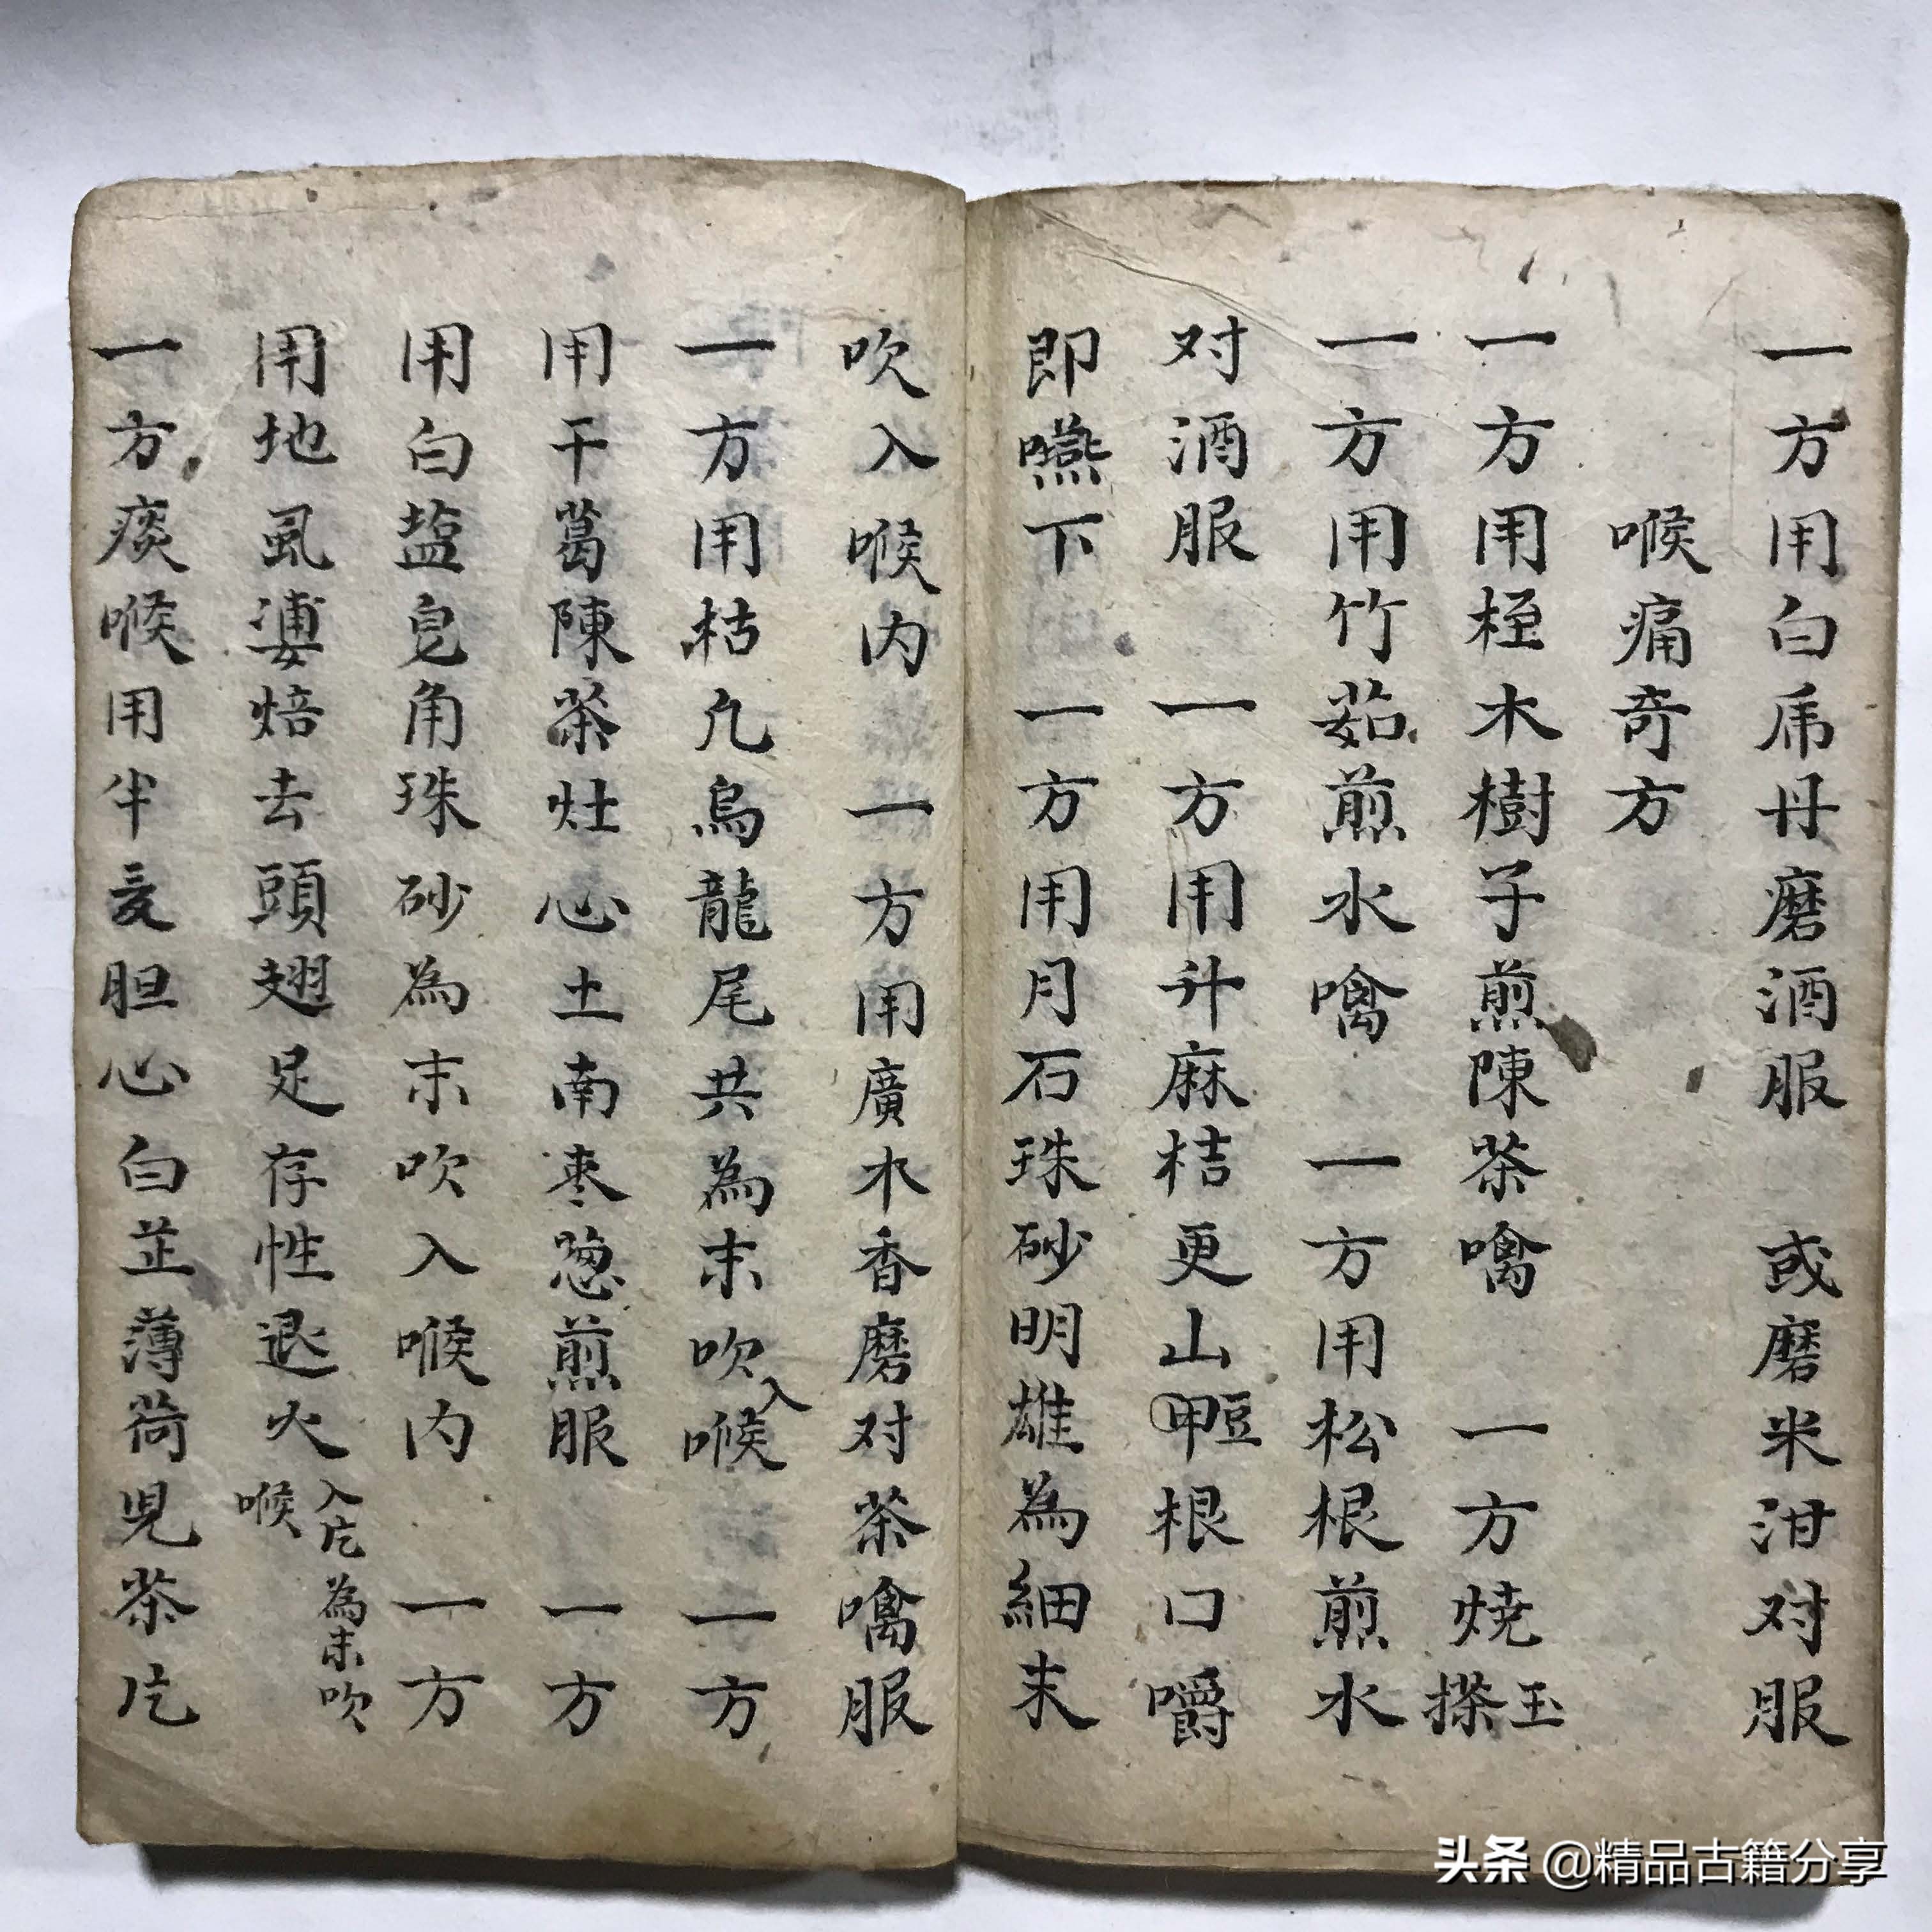 一方用白乕丹磨酒服　或磨米泔对服
喉痛奇方
一方用桎木樹子煎陳茶噙　一方燒搽玉
一方用竹茹煎水噙　一方用松根煎水
对酒服　一方用升麻桔更山甲豆根口嚼
即嚥下　一方用月石珠砂明雄為細末
吹入喉内　一方用廣木香磨对茶噙服
一方用枯凢烏龍尾共為末吹入喉　一方
用干葛陳茶灶心土南枣葱煎服　一方
用白塩皂角珠砂為末吹入喉内　一方
用地虱婆焙去頭翅足存性退火為末吹入喉
一方痰喉用牛胆心白芷薄荷児茶片
头条 @精品古籍分享